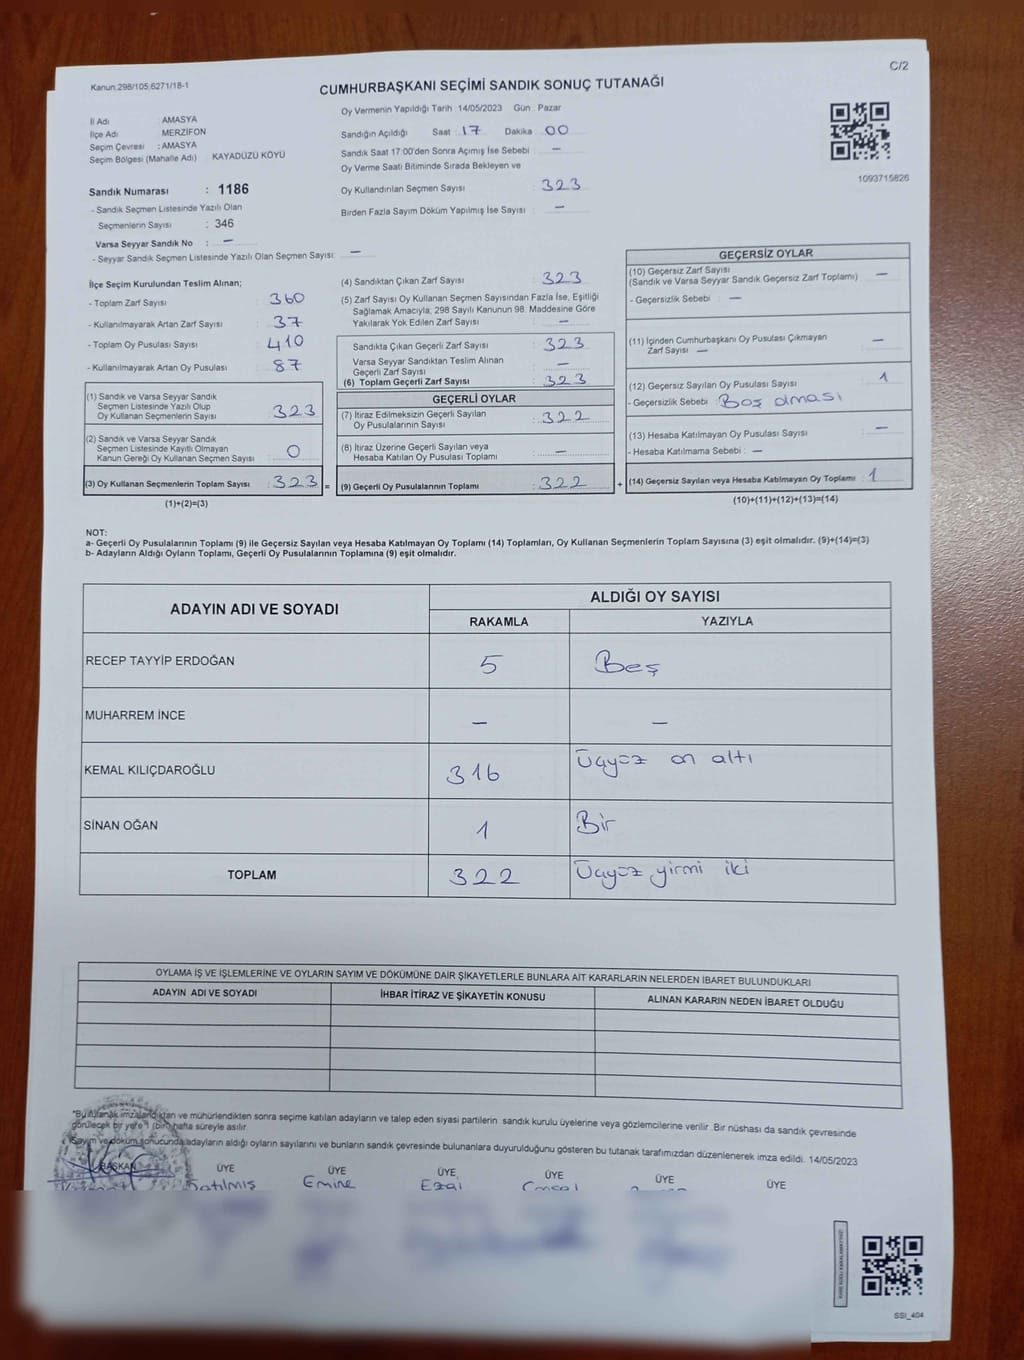 Kanun:298/105;6271/18-1
C/2
CUMHURBAŞKANI SEÇİMİ SANDIK SONUÇ TUTANAĞI
İl Adı : AMASYA
İlçe Adı MERZİFON
Seçim Çevresi : AMASYA
Seçim Bölgesi (Mahalle Adı) KAYADÜZÜ KÖYÜ
Sandık Numarası : 1186
- Sandık Seçmen Listesinde Yazılı Olan
Seçmenlerin Sayısı : 346
Varsa Seyyar Sandık No : –
- Seyyar Sandık Seçmen Listesinde Yazılı Olan Seçmen Sayısı: –
Oy Vermenin Yapıldığı Tarih :14/05/2023 Gün : Pazar
Sandığın Açıldığı Saat 17 Dakika 00
Sandık Saat 17:00'den Sonra Açımış İse Sebebi –
Oy Verme Saati Bitiminde Sırada Bekleyen ve
Oy Kullandırılan Seçmen Sayısı : 323
Birden Fazla Sayım Döküm Yapılmış İse Sayısı : –
1093715826
İlçe Seçim Kurulundan Teslim Alınan;
- Toplam Zarf Sayısı : 360
- Kullanılmayarak Artan Zarf Sayısı : 37
- Toplam Oy Pusulası Sayısı : 410
- Kullanılmayarak Artan Oy Pusulası : 87
(1) Sandık ve Varsa Seyyar Sandık
Seçmen Listesinde Yazılı Olup
Oy Kullanan Seçmenlerin Sayısı : 323
(2) Sandık ve Varsa Seyyar Sandık
Seçmen Listesinde Kayıtlı Olmayan
Kanun Gereği Oy Kullanan Seçmen Sayısı : 0
(3) Oy Kullanan Seçmenlerin Toplam Sayısı : 323 =
(1)+(2)=(3)
(4) Sandıktan Çıkan Zarf Sayısı : 323
(5) Zarf Sayısı Oy Kullanan Seçmen Sayısından Fazla İse, Eşitliği
Sağlamak Amacıyla; 298 Sayılı Kanunun 98. Maddesine Göre
Yakılarak Yok Edilen Zarf Sayısı : –
Sandıkta Çıkan Geçerli Zarf Sayısı : 323
Varsa Seyyar Sandıktan Teslim Alınan
Geçerli Zarf Sayısı : –
(6) Toplam Geçerli Zarf Sayısı : 323
GEÇERLİ OYLAR
(7) İtiraz Edilmeksizin Geçerli Sayılan
Oy Pusulalarının Sayısı : 322
(8) İtiraz Üzerine Geçerli Sayılan veya
Hesaba Katılan Oy Pusulası Toplamı : –
(9) Geçerli Oy Pusulalarının Toplamı : 322 +
GEÇERSİZ OYLAR
(10) Geçersiz Zarf Sayısı
(Sandık ve Varsa Seyyar Sandık Geçersiz Zarf Toplamı) : –
- Geçersizlik Sebebi : –
(11) İçinden Cumhurbaşkanı Oy Pusulası Çıkmayan
Zarf Sayısı – : –
(12) Geçersiz Sayılan Oy Pusulası Sayısı : 1
- Geçersizlik Sebebi : Boş olması
(13) Hesaba Katılmayan Oy Pusulası Sayısı : –
- Hesaba Katılmama Sebebi : –
(14) Geçersiz Sayılan veya Hesaba Katılmayan Oy Toplamı : 1
(10)+(11)+(12)+(13)=(14)
NOT:
a- Geçerli Oy Pusulalarının Toplamı (9) ile Geçersiz Sayılan veya Hesaba Katılmayan Oy Toplamı (14) Toplamları, Oy Kullanan Seçmenlerin Toplam Sayısına (3) eşit olmalıdır. (9)+(14)=(3)
b- Adayların Aldığı Oyların Toplamı, Geçerli Oy Pusulalarının Toplamına (9) eşit olmalıdır.
ADAYIN ADI VE SOYADI ALDIĞI OY SAYISI
RAKAMLA YAZIYLA
RECEP TAYYİP ERDOĞAN 5 Beş
MUHARREM İNCE – –
KEMAL KILIÇDAROĞLU 316 Üçyüz on altı
SİNAN OĞAN 1 Bir
TOPLAM 322 Üçyüz yirmi iki
OYLAMA İŞ VE İŞLEMLERİNE VE OYLARIN SAYIM VE DÖKÜMÜNE DAİR ŞİKAYETLERLE BUNLARA AİT KARARLARIN NELERDEN İBARET BULUNDUKLARI
ADAYIN ADI VE SOYADI İHBAR İTİRAZ VE ŞİKAYETİN KONUSU ALINAN KARARIN NEDEN İBARET OLDUĞU
*Bu tutanak imzalandıktan ve mühürlendikten sonra seçime katılan adayların ve talep eden siyasi partilerin sandık kurulu üyelerine veya gözlemcilerine verilir. Bir nüshası da sandık çevresinde
görülecek bir yere 1 (bir) hafta süreyle asılır.
Sayım ve döküm sonucunda adayların aldığı oyların sayılarını ve bunların sandık çevresinde bulunanlara duyurulduğunu gösteren bu tutanak tarafımızdan düzenlenerek imza edildi. 14/05/2023
BAŞKAN ÜYE ÜYE ÜYE ÜYE ÜYE ÜYE
Satılmış Emine Ezgi
SSI_404